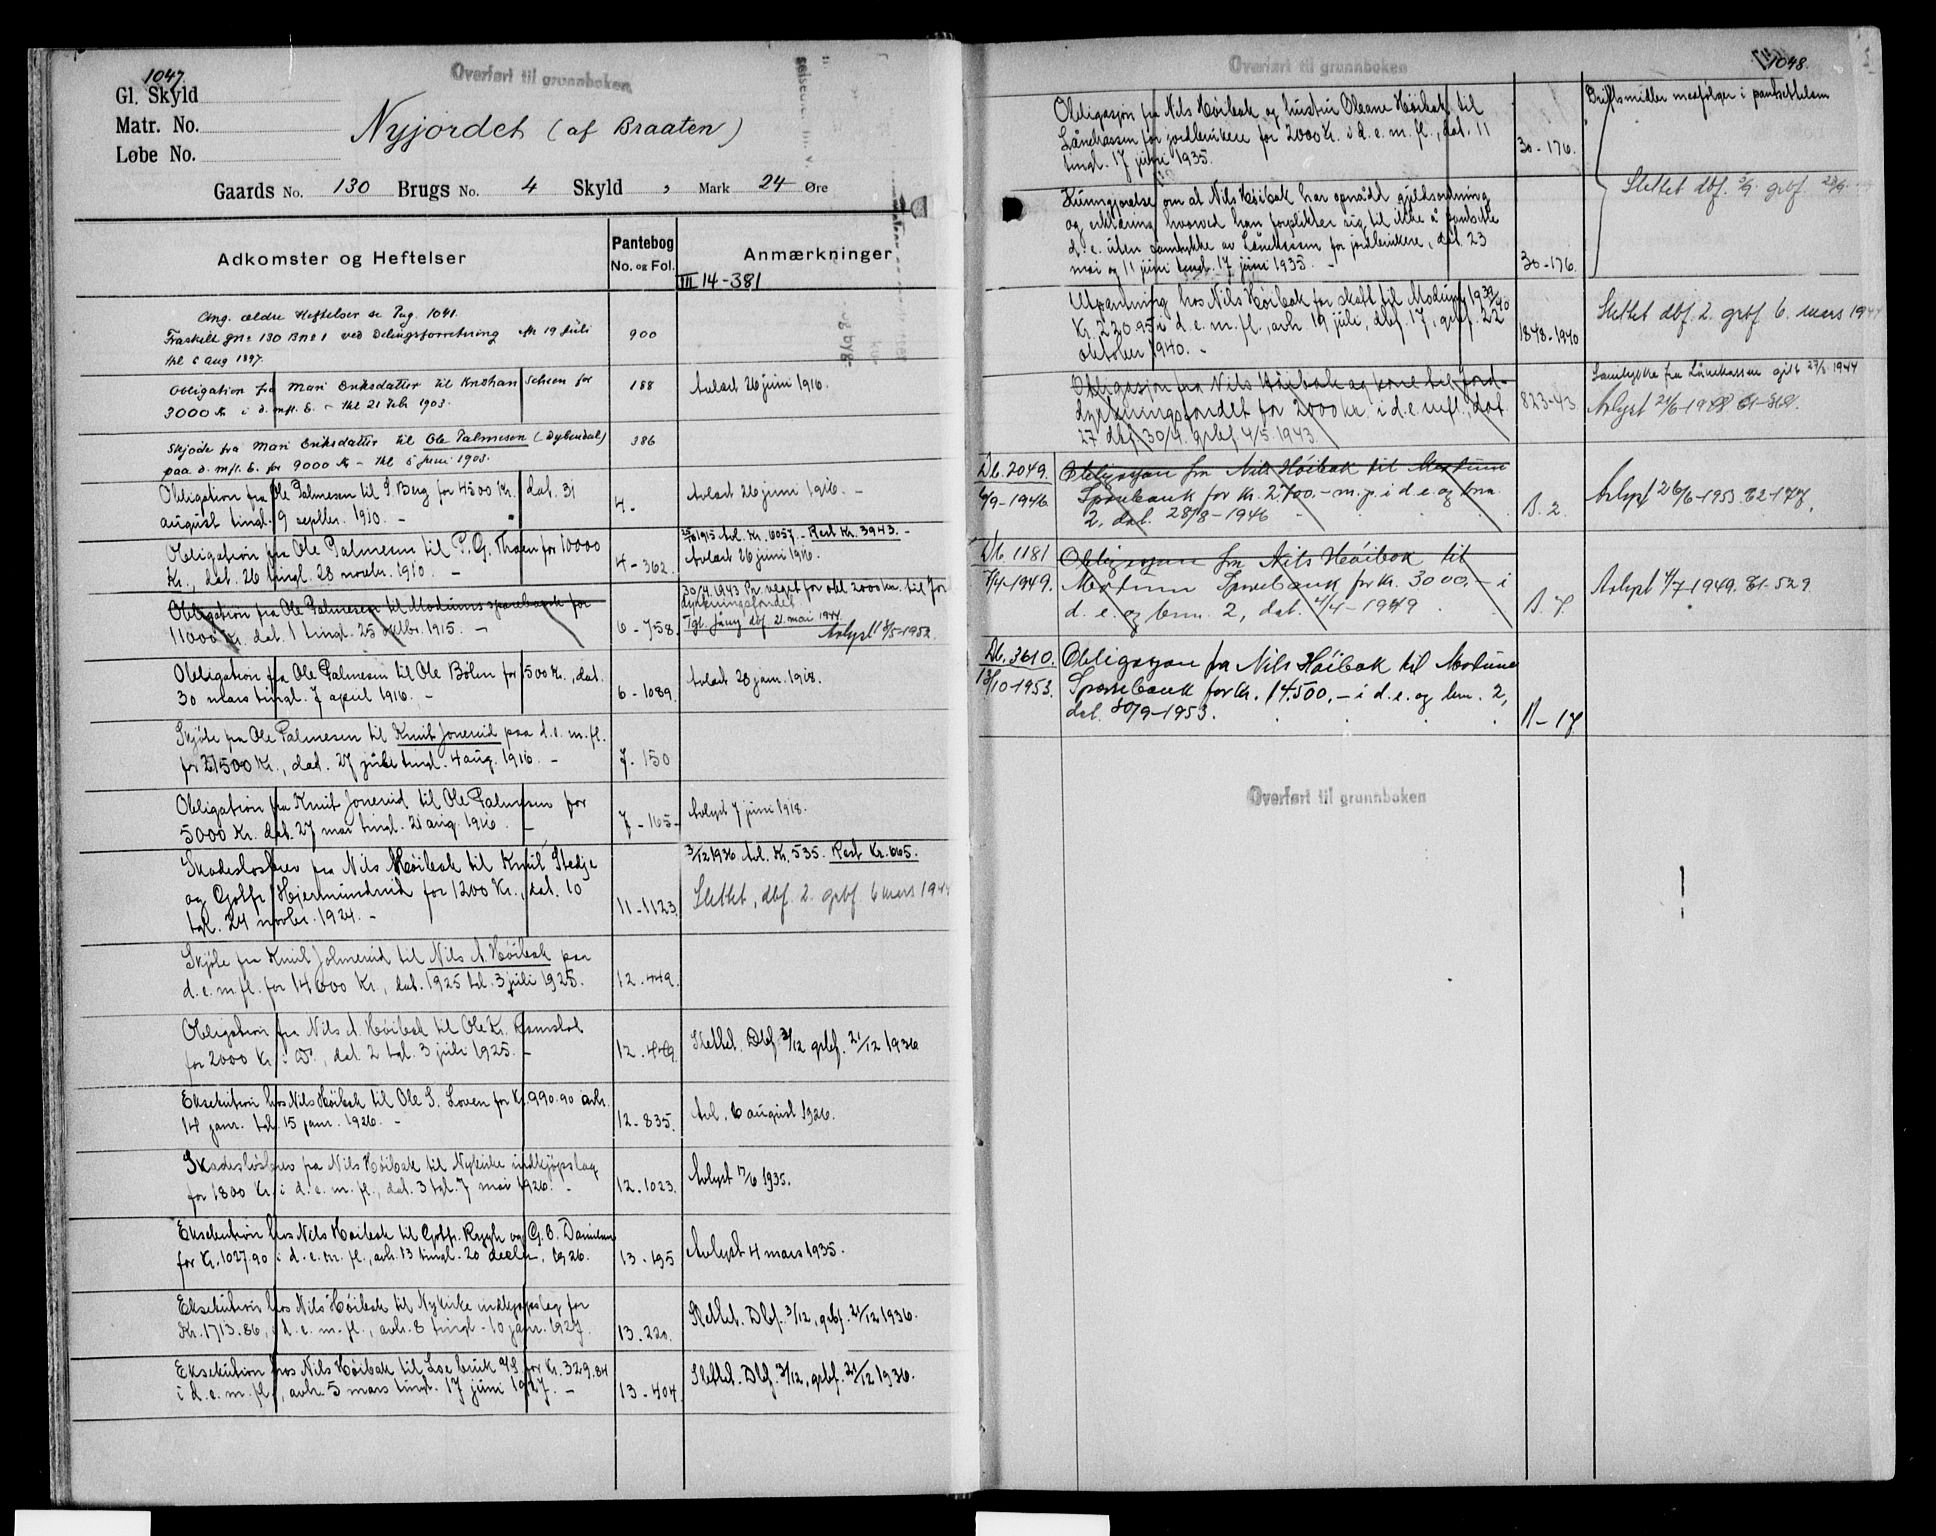 1047.
Overført til grunnboken
Gl. Skyld
Matr. No.
Løbe No.
Nyjordet (af Braaten)
Gaards No. 130 Brugs No. 4 Skyld , Mark 24 Øre
Adkomster og Heftelser
Pantebog
No. og Fol.
Anmærkninger
III 14-381
Ang. ældre Heftelser se Pag. 1041.
Fraskilt gno 130 Bno 1 ved Delingsforretning 19 Juli
thl 6 aug 1897.
900
Obligation fra Mari Eriksdatter til Knohan for
3000 Kr i d. mfl. E. - thl 21 Febr 1903.
188
Avlæst 26 juni 1916.
Skjøde fra Mari Eriksdatter til Ole Palmesen (Dybendal)
paa d. mfl. E. for 9000 Kr - thl 5 Juni 1903.
386
Obligation fra Ole Palmesen til S Berg for 4500 Kr. dat. 31
august tingl. 9 septbr. 1910. -
4-
Avlæst 26 juni 1916. -
Obligation fra Ole Palmesen til P. G. Thoen for 10000
Kr., dat. 26 tingl. 28 novbr. 1910. -
4-362.
1915 Avl. Kr. 6057. - Rest Kr. 3943. -
Avlæst 26 juni 1916.
Obligation fra Ole Palmesen til Modums sparebank for
11000 Kr. dat. 1 tingl. 25 oktbr. 1915. -
6-758.
30/4 1943 Pr. veget for obl 2000 kr. til Jor
dyrkningsfondet
Tgl. dbf 21. mai 1944
Avlyst 8/5-1952.
Obligation fra Ole Palmesen til Ole Bølen for 1500 Kr., dat.
30 mars tingl. 7 april 1916. -
6-1089.
Avlæst 28 jan. 1918.
Skjøte fra Ole Palmesen til Knut Jonerud paa d. e. m. fl.
for 21500 Kr., dat. 27 juli tingl. 4 aug. 1916. -
7-150
Obligation fra Knut Jonerud til Ole Palmesen for
5000 Kr. dat. 27 mai tingl. 21 aug. 1916. -
7-165-
Avlyst 7 juni 1918.
Skadesløsbrev fra Nils Høibak til Knut Stedje
og Gotfr. Hjermundrud for 1200 Kr., dat. 10
tgl. 24 novbr. 1924. -
11-1123.
3/12 1936 Avl. Kr. 535. Rest Kr. 665.
Slettet, dbf. 2. grbf. 6 mars 1944
Skjøte fra Knut Jolmerud til Nils A. Høibak paa
d. e. m. fl. for 14000 Kr., dat. 1925 tgl. 3 juli 1925.
12-449.
Obligation fra Nils A. Høibak til Ole Kr. Ramstol
for 2000 Kr. i Do., dat. 2 tgl. 3 juli 1925. -
12-449.
Slettet. Dbf. 3/12 grbf. 21/12 1936
Eksekution hos Nils Høibak til Ole S. Loven for Kr. 990.90 avh.
14 janr. tgl. 15 janr. 1926. -
12-835.
Avl. 6 august 1926.
Skadesløsbrev fra Nils Høibak til Nykirke indkjøpslag
for 1800 Kr. i d. e. m. fl., dat. 3 tgl. 7 mai 1926. -
12-1023.
Avlyst 17/6 1935.
Eksekution hos Nils Høibak til Gotfr. Rygh og G. E. Danielsen
for Kr. 1027.90 i d. e. m. fl., avh. 13 tingl. 20 decbr. 1926.
13-195
Avlyst 4 mars 1935.
Eksekution hos Nils Høibak til Nykirke indkjøpslag for
Kr. 1713.86, i d. e. m. fl., avh. 8 tingl. 10 janr. 1927.
13-220.
Slettet. Dbf. 3/12, grbf. 21/12 1936.
Eksekution hos Nils Høibak til Loe bruk A/S for Kr. 329.84
i d. e. m. fl., avh. 5 mars tingl. 17 juni 1927. -
13-404
Slettet. Dbf. 3/12, grbf. 21/12 1936.
Overført til grunnboken
1048.
Obligasjon fra Nils Høibak og hustru Oleane Høibak til
Lånekassen for jordbrukere for 2000 Kr. i d. e. m. fl., dat. 11
tingl. 17 juni 1935.
30-176.
Driftsmidler medfølger i pantsettelsen
Kunngjørelse om at Nils Høibak har opnådd gjeldsordning
og erklæring hvorved han forplikter sig til ikke å pantsette
d. e. uten samtykke av Lånekassen for jordbrukere, dat. 23
mai og 11 juni tingl. 17 juni 1935. -
30-176.
Slettet dbf. 2/9. grbf. 23/9.
Utpantning hos Nils Høibak for skatt til Modum 1939/40
Kr. 230.95 i d. e. m. fl., avh. 19 juli, dbf. 17, grbf. 22
oktober 1940. -
1878-1940
Slettet dbf. 2. grbf. 6. mars 1944
Obligasjon fra Nils Høibak og kone til Jord-
dyrkningsfondet for 2000 kr. i d. e. mfl., dat.
27 dbf 30/4. grbf 4/5 1943.
823-43.
Samtykke fra Lånekassen gitt 27/5 1944
Avlyst 21/6-1948 B1-361.
Db. 2049.
6/9-1946.
Obligasjon fra Nils Høibak til Modum
Sparebank for kr. 2700.- m. p. i d. e. og bnr.
2, dat. 28/8-1946
B. 2.
Avlyst 26/6-1953. B2-177.
Db. 1181
7/4-1949.
Obligasjon fra Nils Høibak til
Modum Sparebank for kr. 3000.- i
d. e. og bnr. 2, dat. 4/4-1949
B. 7
Avlyst 4/7 1949. B1-529
Db. 3610.
13/10-1953.
Obligasjon fra Nils Høibak til Modum
Sparebank for kr. 14.500.- i d. e. og bnr. 2,
dat. 30/9-1953.
B-17
Overført til grunnboken